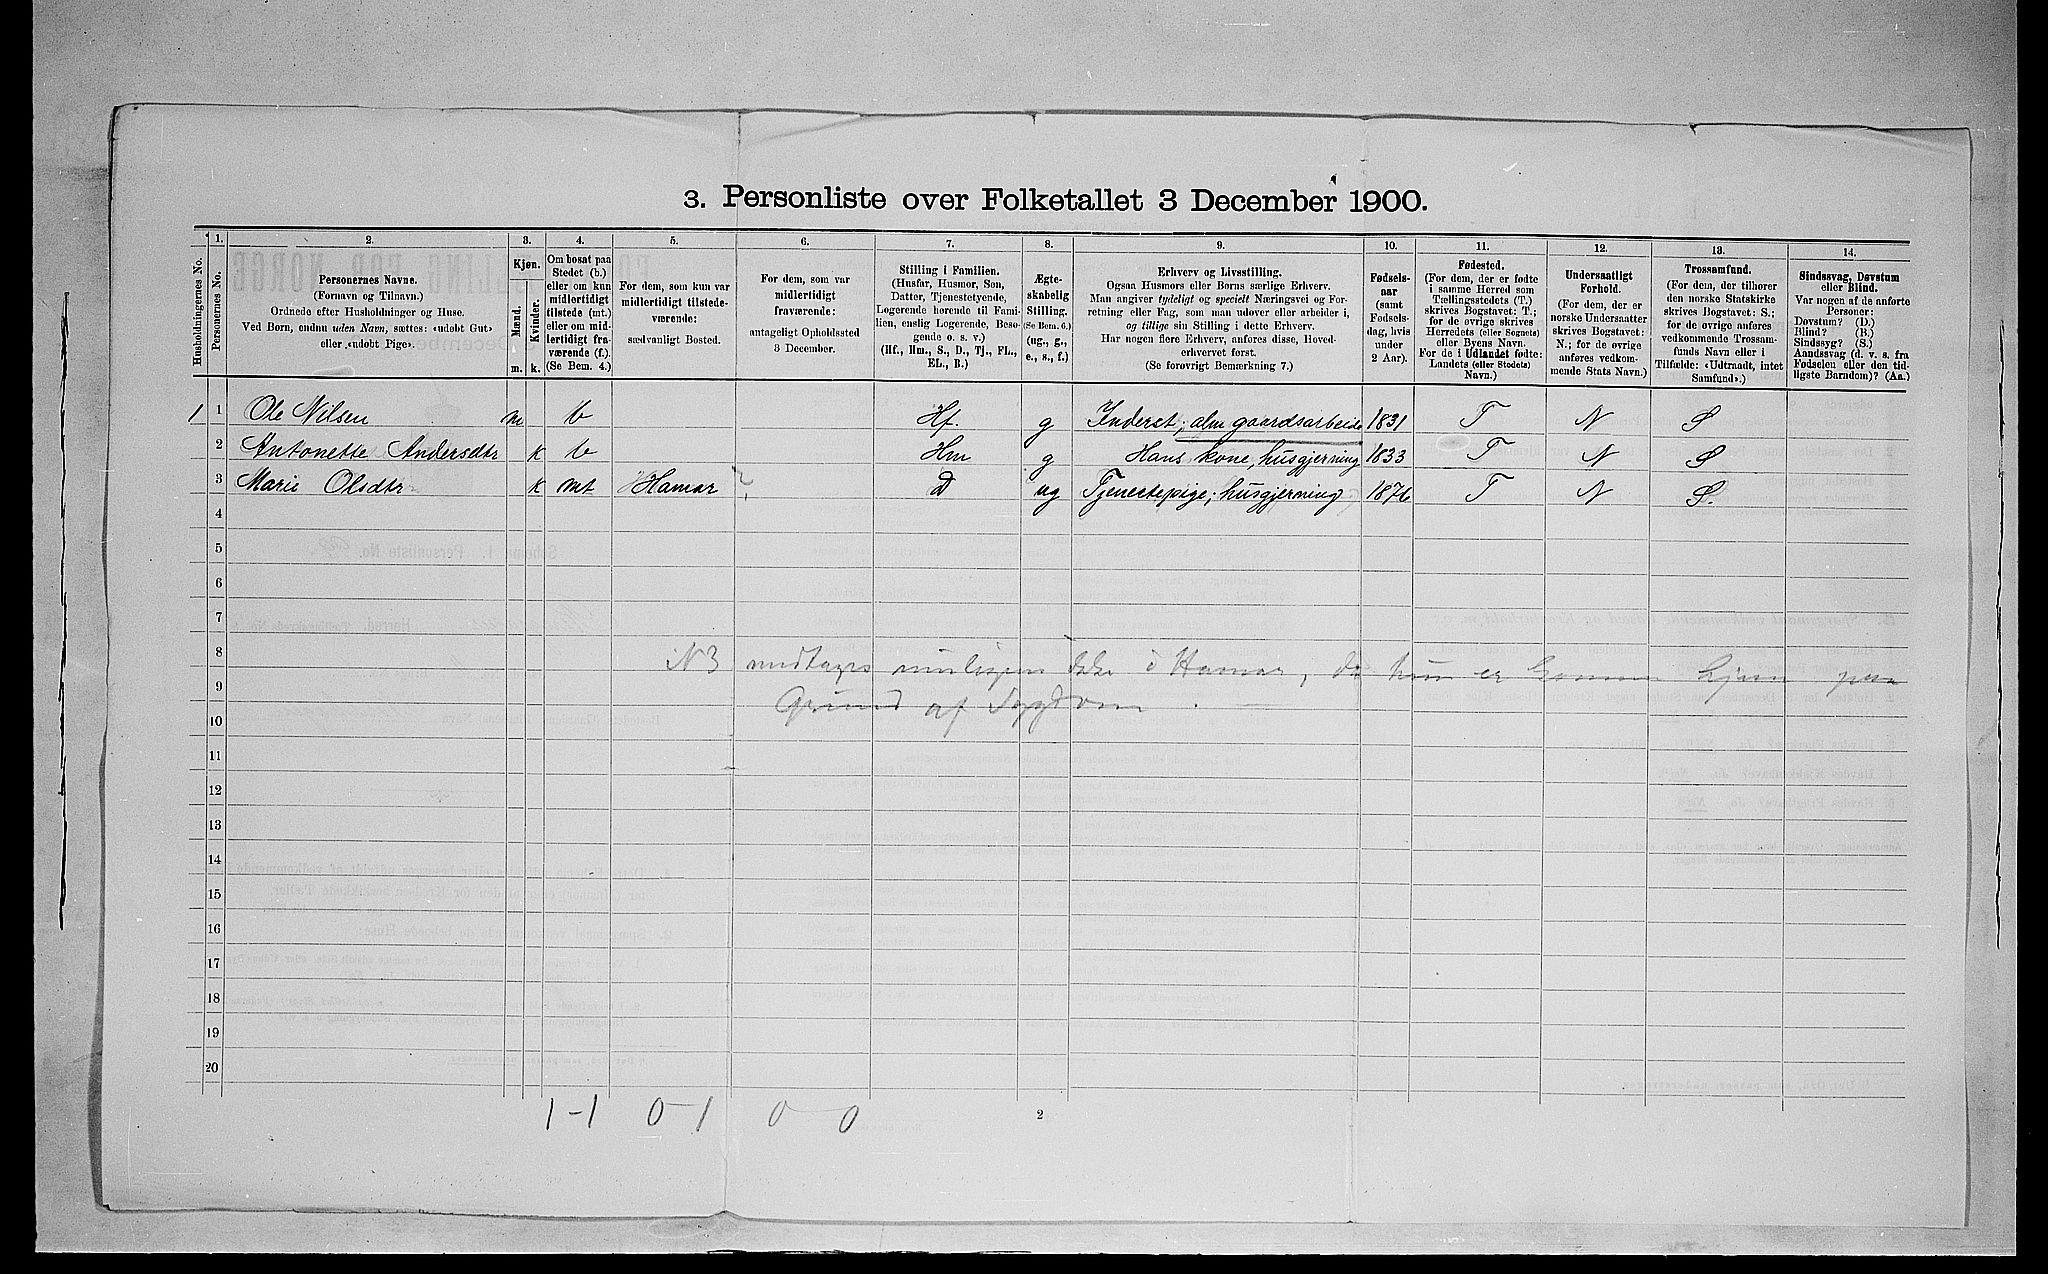 3. Personliste over Folketallet 3 December 1900.
Husholdningernes No.
1.
Personernes No.
2.
Personernes Navne.
(Fornavn og Tilnavn.)
Ordnede efter Husholdninger og Huse.
Ved Børn, endnu uden Navn, sættes: «udøbt Gut»
eller «udøbt Pige».
3.
Kjøn.
Mænd.
Kvinder.
m.
k.
4.
Om bosat paa
Stedet (b.)
eller om kun
midlertidigt
tilstede (mt.)
eller om mid-
lertidigt fra-
værende (f.).
(Se Bem. 4.)
5.
For dem, som kun var
midlertidigt tilstede-
værende:
sædvanligt Bosted.
6.
For dem, som var
midlertidigt
fraværende:
antageligt Opholdssted
3 December.
7.
Stilling i Familien.
(Husfar, Husmor, Søn,
Datter, Tjenestetyende,
Logerende hørende til Fami-
lien, enslig Logerende, Besø-
gende o. s. v.)
(Hf., Hm., S., D., Tj., FL.,
EL., B.)
8.
Ægte-
skabelig
Stilling.
(Se Bem. 6.)
(ug., g.,
e., s., f.)
9.
Erhverv og Livsstilling.
Ogsaa Husmors eller Børns særlige Erhverv.
Man angiver tydeligt og specielt Næringsvei og For-
retning eller Fag, som man udøver eller arbeider i,
og tillige sin Stilling i dette Erhverv.
Har nogen flere Erhverv, anføres disse, Hoved-
erhvervet først.
(Se forøvrigt Bemærkning 7.)
10.
Fødsels-
aar
(samt
Fødsels-
dag, hvis
under
2 Aar).
11.
Fødested.
(For dem, der er fødte
i samme Herred som
Tællingsstedets (T.)
skrives Bogstavet: T.;
for de øvrige skrives
Herredets (eller Sognets)
eller Byens Navn.
For de i Udlandet fødte:
Landets (eller Stedets)
Navn.)
12.
Undersaatligt
Forhold.
(For dem, der er
norske Undersaatter
skrives Bogstavet:
N.; for de øvrige
anføres vedkom-
mende Stats Navn.)
13.
Trossamfund.
(For dem, der tilhører
den norske Statskirke
skrives Bogstavet: S.;
for de øvrige anføres
vedkommende Trossam-
funds Navn eller i
Tilfælde: «Udtraadt, intet
Samfund».)
14.
Sindssvag, Døvstum
eller Blind.
Var nogen af de anførte
Personer:
Døvstum? (D.)
Blind? (B.)
Sindssyg? (S.)
Aandssvag (d. v. s. fra
Fødselen eller den tid-
ligste Barndom)? (Aa.)
1 1 Ole Nilsen m b Hf. g Inderst, alm gaardsarbeide 1831 T N S
2 Antonette Andersdtr k b Hm g Hans kone, husgjerning 1833 T N S
3 Marie Olsdtr k mt Hamar ? D ug Tjenestepige, husgjerning 1876 T N S.
4
5
6
7
8 N 3 medtages muligens ikke i Hamar, da hun er kommen hjem paa
9 Grund af Sygdom.
10
11
12
13
14
15
16
17
18
19
20
1-1 0-1 0-0
2